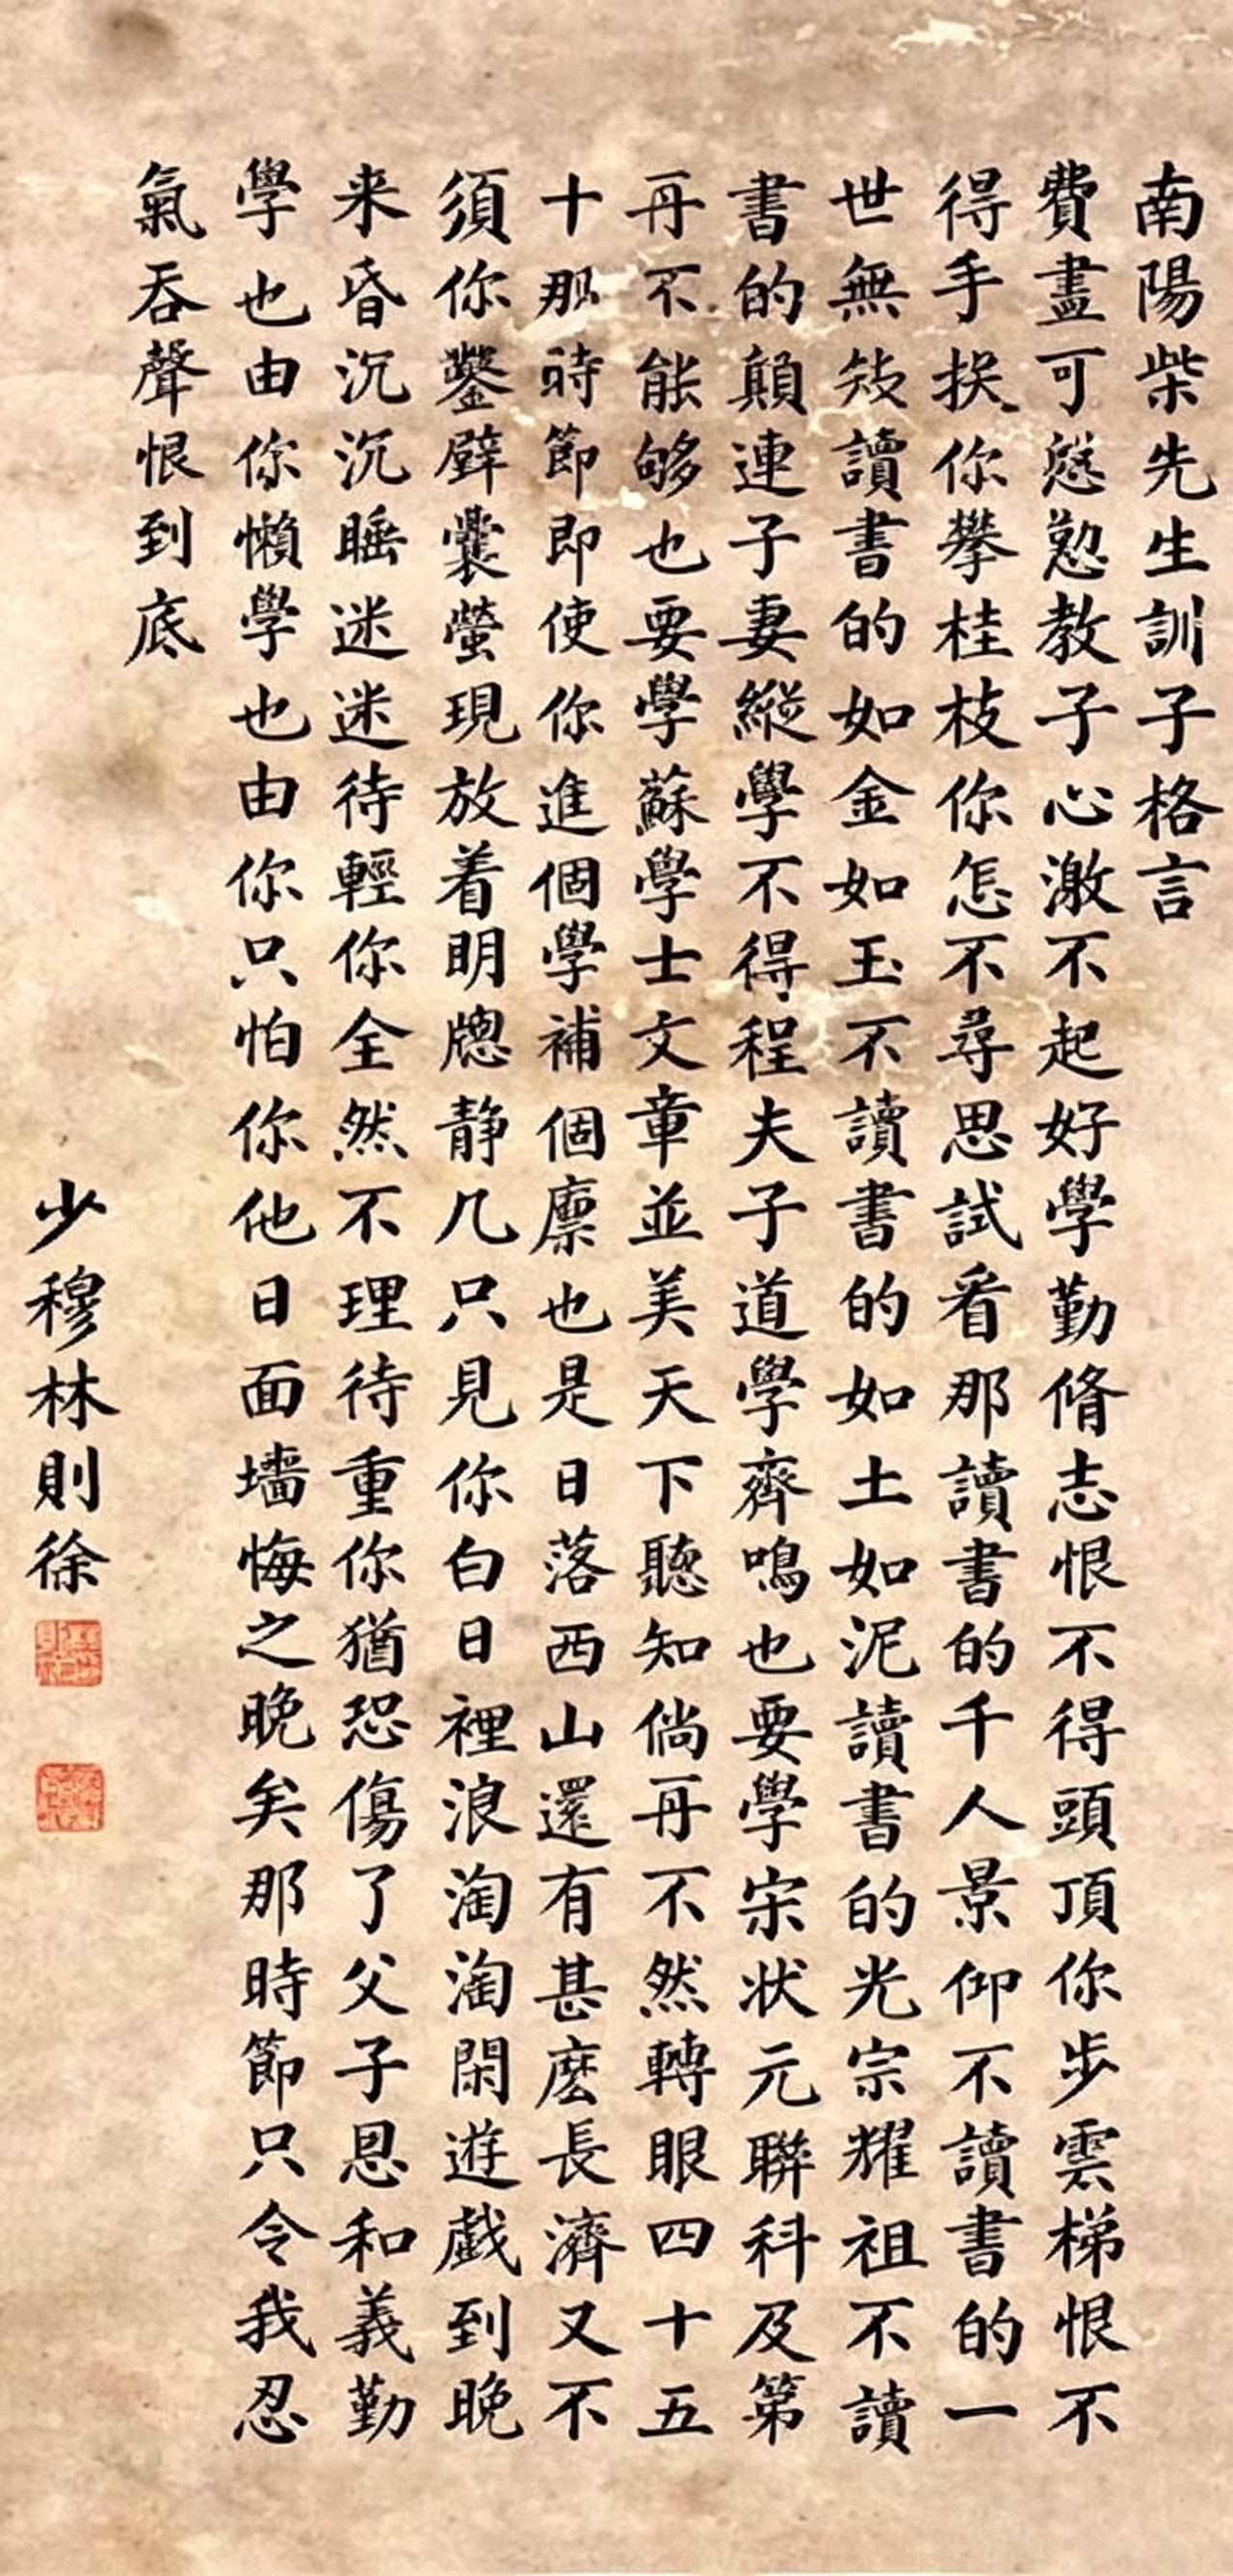 南陽柴先生訓子格言
費盡可慇懃教子心激不起好學勤脩志恨不得頭頂你步雲梯恨不
得手挨你攀桂枝你怎不尋思試看那讀書的千人景仰不讀書的一
世無敍讀書的如金如玉不讀書的如土如泥讀書的光宗耀祖不讀
書的顛連子妻縱學不得程夫子道學齊鳴也要學宋状元聯科及第
再不能够也要學蘇學士文章並美天下聽知倘再不然轉眼四十五
十那時節即使你進個學補個廪也是日落西山還有甚麽長濟又不
須你鑿壁囊螢現放着明牕静几只見你白日裡浪淘淘閑遊戯到晚
来昏沉沉睡迷迷待輕你全然不理待重你猶恐傷了父子恩和義勤
學也由你懶學也由你只怕你他日面墻悔之晚矣那時節只令我忍
氣吞聲恨到底
少穆林則徐